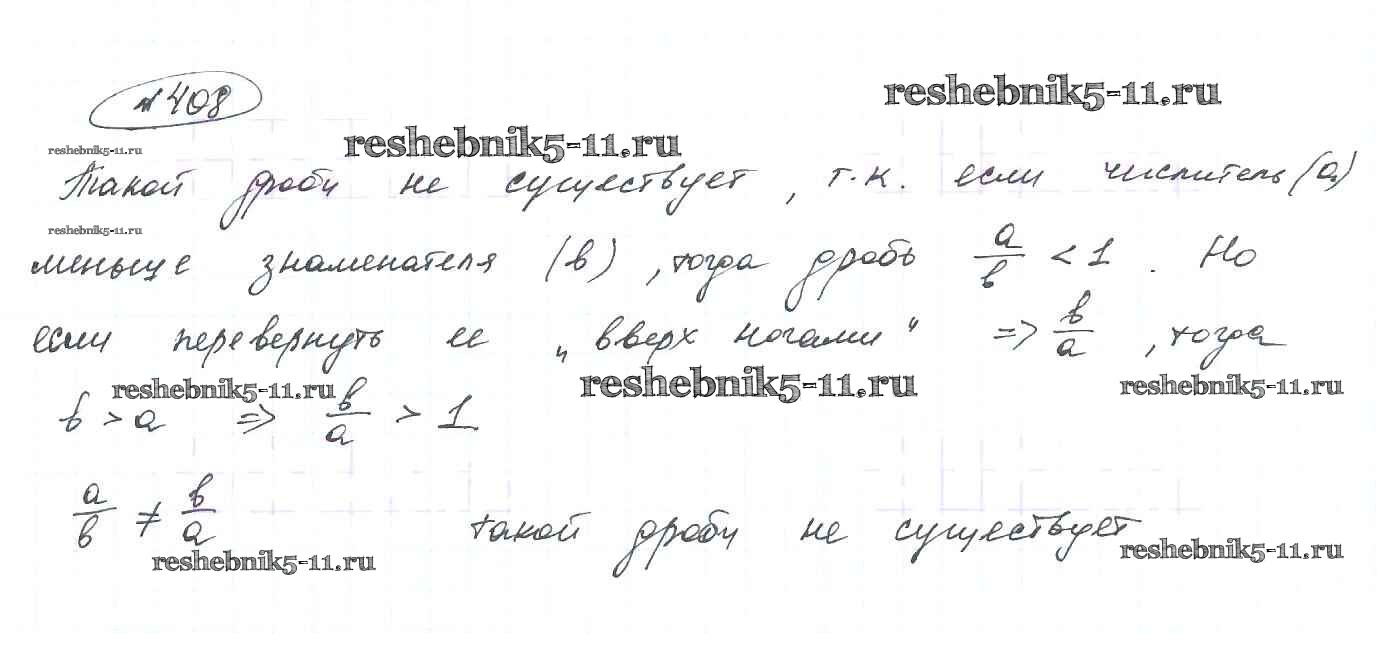 № 408
reshebnik5-11.ru
reshebnik5-11.ru
reshebnik5-11.ru
Такой дроби не существует, т.к. если числитель (а)
reshebnik5-11.ru
меньше знаменателя (в), тогда дробь a/в < 1. Но
если перевернуть ее „вверх ногами“ => в/a, тогда
reshebnik5-11.ru
reshebnik5-11.ru
reshebnik5-11.ru
в > a => в/a > 1
a/в ≠ в/a такой дроби не существует
reshebnik5-11.ru
reshebnik5-11.ru